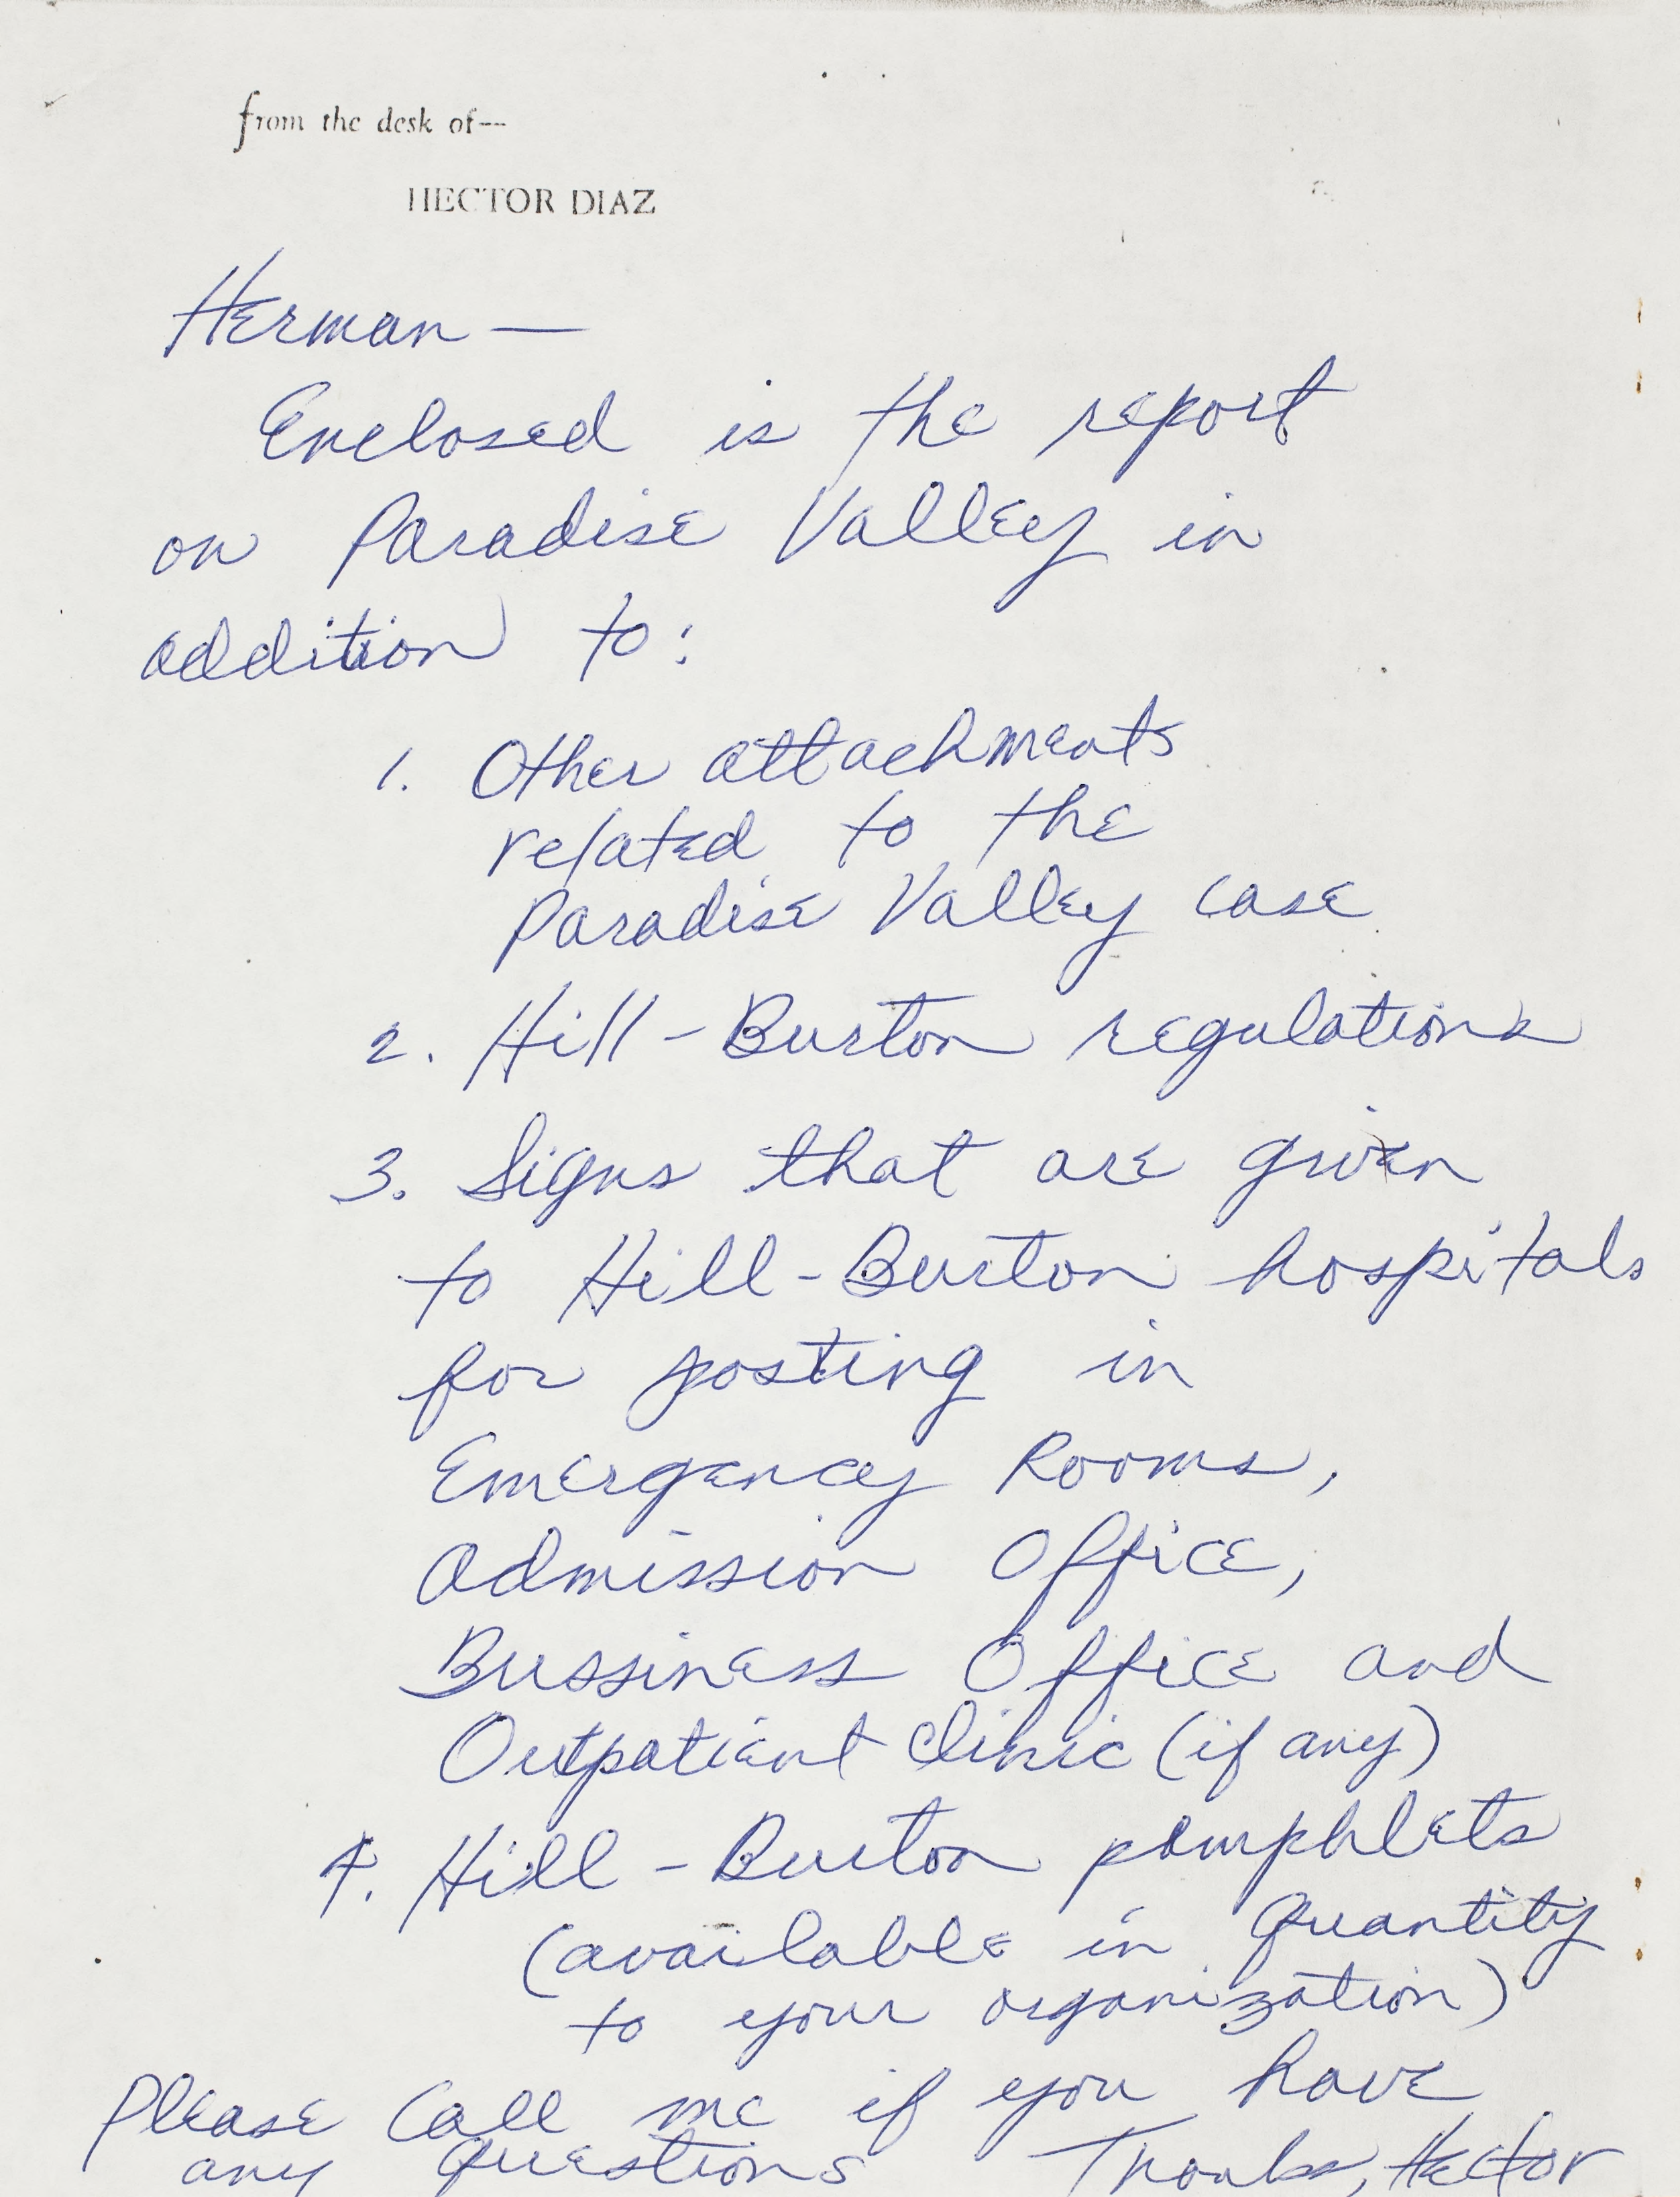 from the desk of--
HECTOR DIAZ
Herman —
Enclosed is the report
on Paradise Valley in
addition to:
1. Other attachments
related to the
Paradise Valley case
2. Hill-Burton regulations
3. Signs that are given
to Hill-Burton hospitals
for posting in
Emergency Rooms,
Admission Office,
Bussiness Office and
Outpatient Clinic (if any)
4. Hill-Burton pamphlets
(available in quantity
to your organization)
Please call me if you have
any questions Thanks, Hector